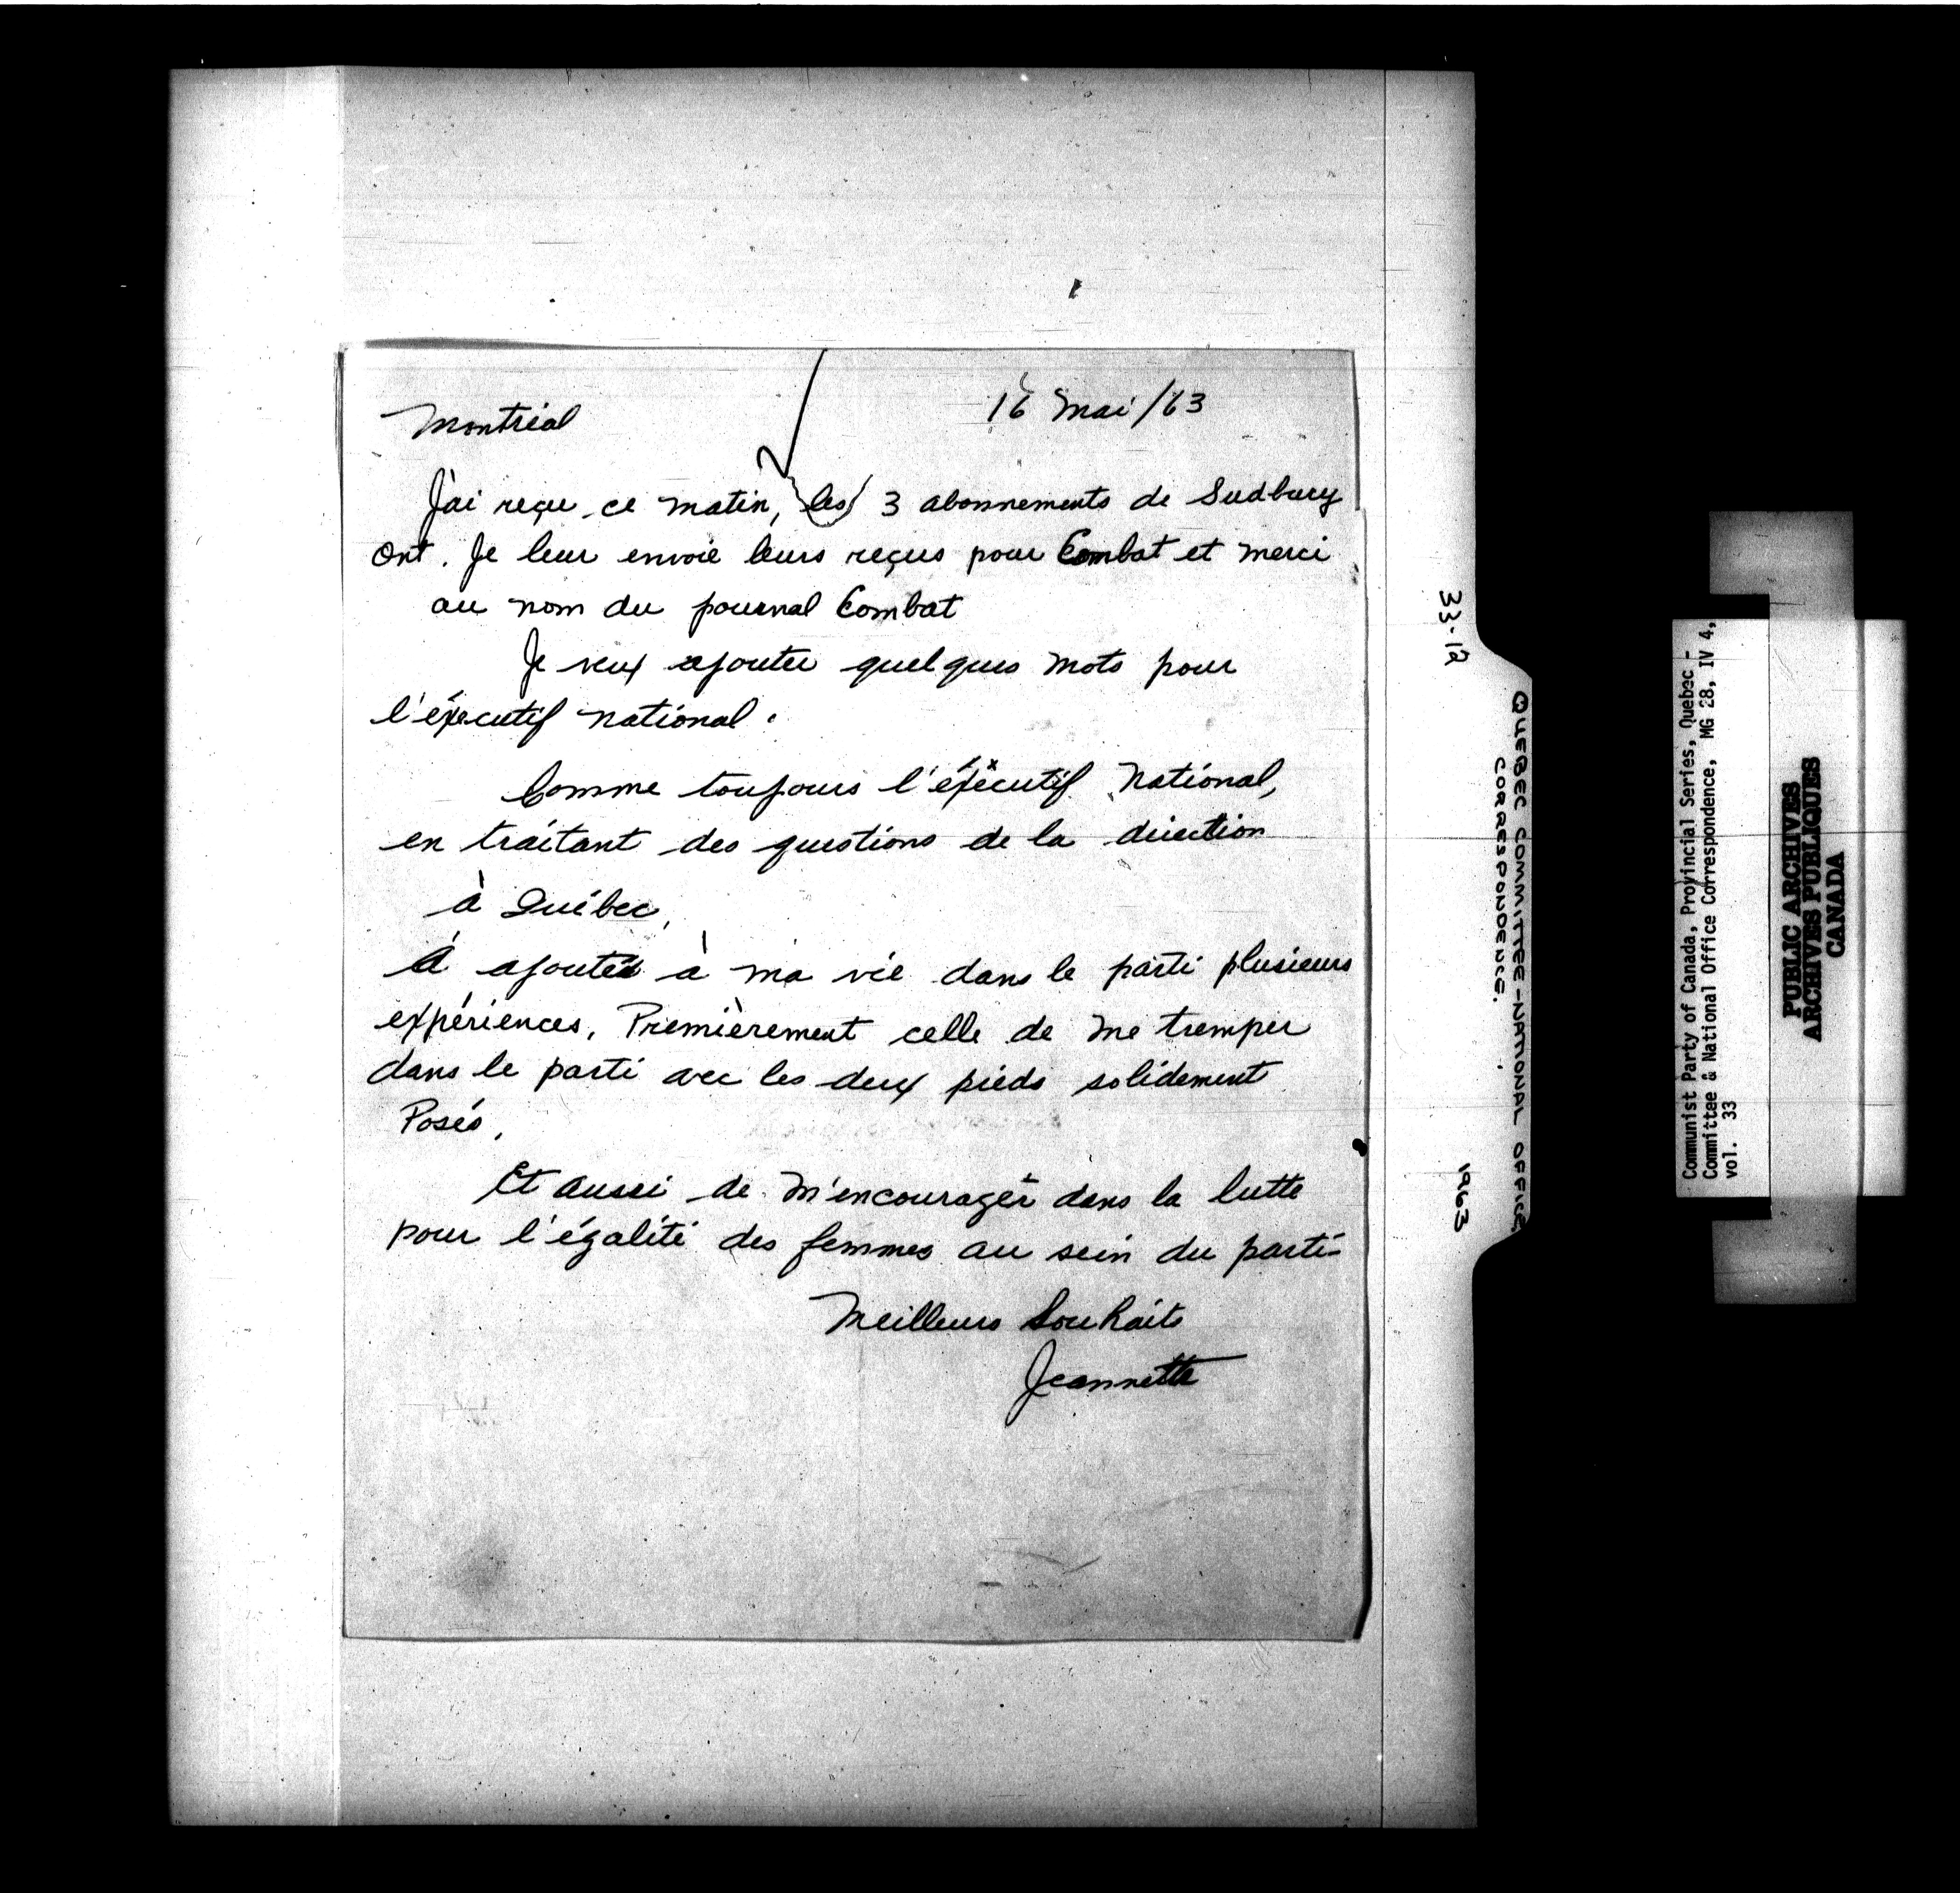 Montréal
16 Mai/63
J'ai reçu ce matin, les 3 abonnements de Sudbury
Ont. Je leur envoie leurs reçus pour Combat et merci
au nom du journal Combat
Je veux ajouter quelques mots pour
l'éxecutif national.
Comme toujours l'éxécutif National,
en traitant des questions de la direction
à Québec,
À ajouter à ma vie dans le parti plusieurs
expériences, Premièrement celle de me tremper
dans le parti avec les deux pieds solidement
Posés,
Et aussi de m'encourager dans la lutte
pour l'égalité des femmes au sein du parti
Meilleurs Souhaits
Jeannette
33-12
QUEBEC COMMITTEE - NATIONAL OFFICE
CORRESPONDENCE.
1963
Communist Party of Canada, Provincial Series, Quebec -
Committee & National Office Correspondence, MG 28, IV 4,
vol. 33
PUBLIC ARCHIVES
ARCHIVES PUBLIQUES
CANADA